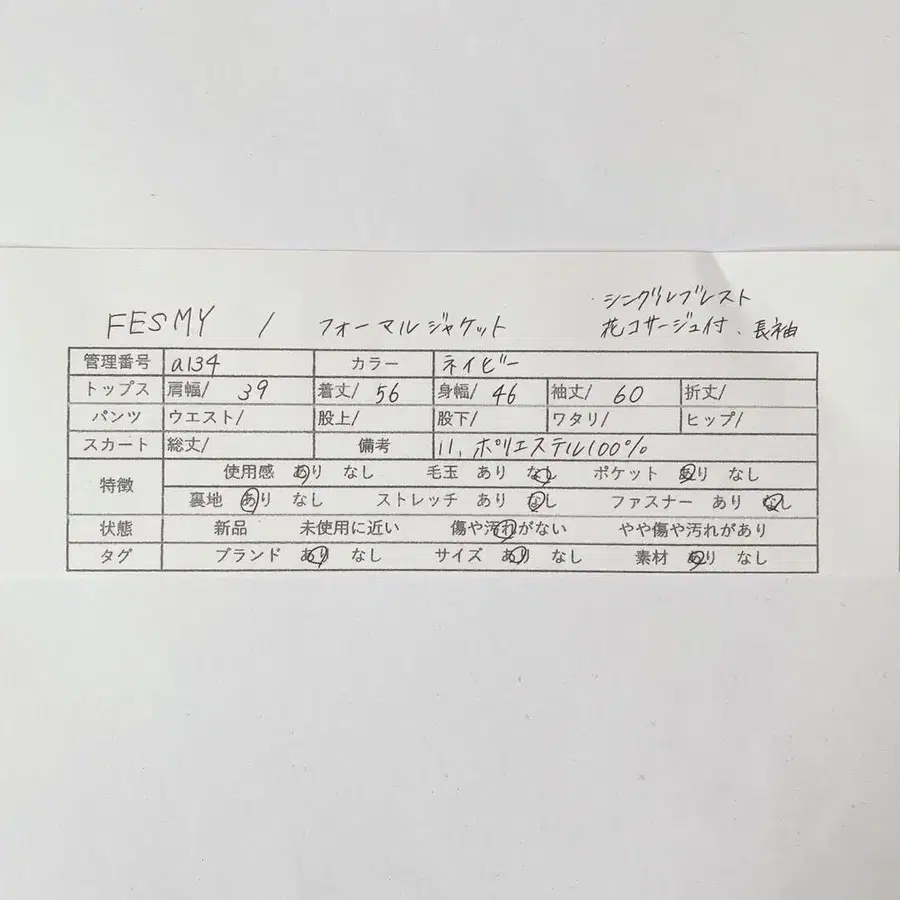 シングルブレスト
FESMY / フォーマルジャケット 花コサージュ付、長袖
管理番号 a134 カラー ネイビー
トップス 肩幅/ 39 着丈/ 56 身幅/ 46 袖丈/ 60 折丈/
パンツ ウエスト/ 股上/ 股下/ ワタリ/ ヒップ/
スカート 総丈/ 備考 11、ポリエステル100%
特徴 使用感 あり なし 毛玉 あり なし ポケット あり なし
裏地 あり なし ストレッチ あり なし ファスナー あり なし
状態 新品 未使用に近い 傷や汚れがない やや傷や汚れがあり
タグ ブランド あり なし サイズ あり なし 素材 あり なし